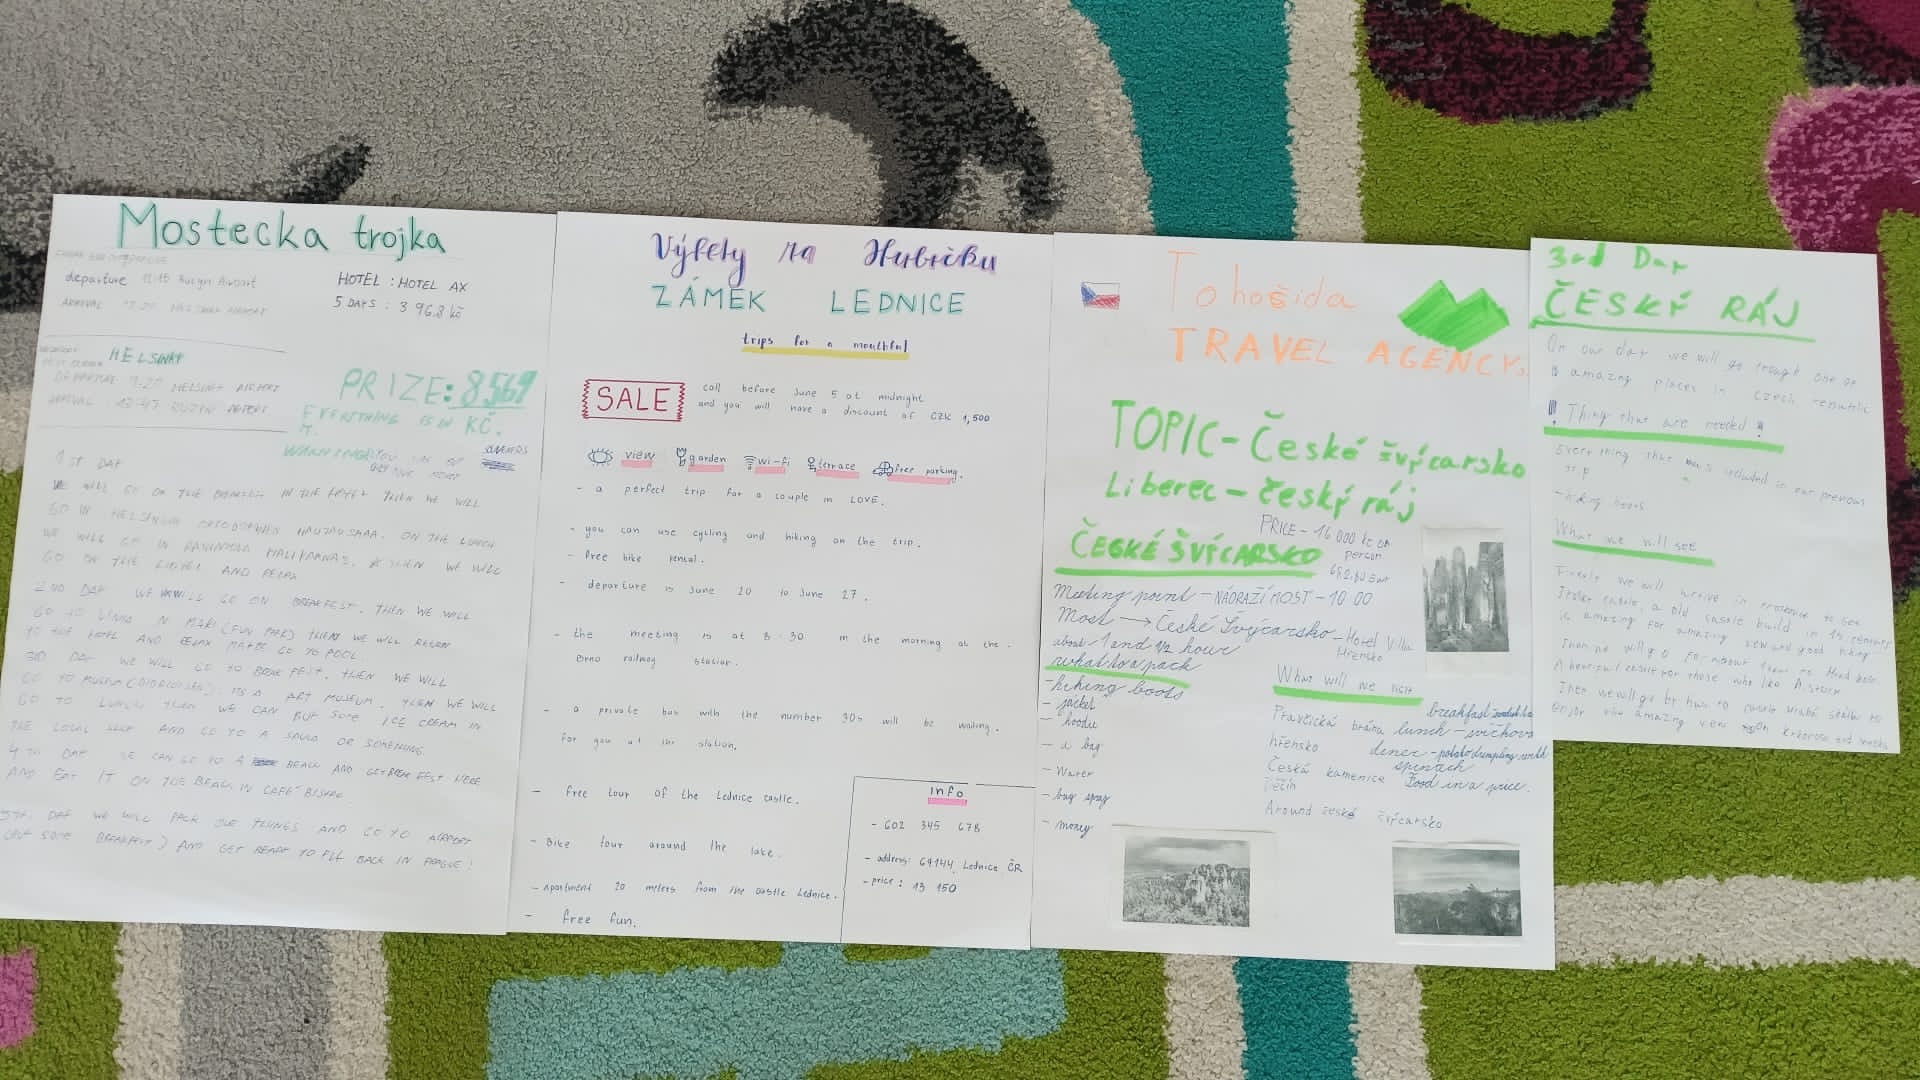 Mostecka trojka
departure 11:15 Ruzyn Airport
ARRIVAL HELSINKI AIRPORT
HOTEL : HOTEL AX
5 DAYS : 3 968 kč
HELSINKY
DEPARTURE HELSINKI AIRPORT
ARRIVAL : RUZYN AIRPORT
PRIZE: 8569
EVERYTHING IS IN KČ.
WARNING!
1ST DAY
WE WILL GO ON THE IN THE HOTEL THEN WE WILL
GO IN HELSINGIN ON THE LUNCH
WE WILL GO IN THEN WE WILL
GO ON THE AND RELAX
2ND DAY WE WILL GO ON BREAKFEST. THEN WE WILL
GO TO (FUN PARK) THEN WE WILL RETURN
TO THE HOTEL AND RELAX MAYBE GO TO POOL
3RD DAY WE WILL GO TO BREAKFEST. THEN WE WILL
GO TO MUSEUM ITS A ART MUSEUM. THEN WE WILL
GO TO LUNCH THEN WE CAN BUY SOME ICE CREAM IN
THE LOCAL SHOP AND GO TO A SAUNA OR SOMETHING
4TH DAY WE CAN GO TO A BEACH AND GET BREAKFEST HERE
AND EAT IT ON THE BEACH IN CAFÉ
5TH DAY WE WILL PACK OUR THINGS AND GO TO AIRPORT
(BUY SOME BREAKFEST) AND GET READY TO FLY BACK IN PRAGUE!
Výlety za Hubičku
ZÁMEK LEDNICE
trips for a mouthful
SALE
call before June 5 at midnight
and you will have a discount of CZK 1,500
view garden wi-fi terrace free parking.
- a perfect trip for a couple in LOVE.
- you can use cycling and hiking on the trip.
- free bike rental.
- departure is June 20 to June 27.
- the meeting is at 8:30 in the morning at the.
Brno railway station.
- a private bus with the number 30s will be waiting.
for you at the station.
- free tour of the Lednice castle.
- Bike tour around the lake.
- Apartment 20 meters from the castle Lednice.
- free fun.
info
- 602 345 678
- address: 69144, Lednice ČR
- price: 13 150
Tohošida
TRAVEL AGENCY
TOPIC- České švýcarsko
Liberec - český ráj
PRICE - 16 000 kč on
person
ČESKÉ ŠVÝCARSKO
Meeting point - NÁDRAŽÍ MOST - 10:00
Most → České Švýcarsko - Hotel Villa
Hřensko
about 1 and 1/2 hour
what to pack
- hiking boots
- jacket
- hoodie
- a bag
- Water
- bug spray
- money
What will we visit
Pravčická brána
hřensko
Česká kamenice
Děčín
Around české švýcarsko
breakfast
lunch - svíčková
dinner - potato dumpling with
spinach
Food in a price.
3rd Day
ČESKÝ RÁJ
On our day we will go trough one of
amazing places in czech republic
! Thing that are needed !
Every thing that was included in our previous
trip
- hiking boots
What we will see
Firstly we will arrive in to see
castle, a old castle build in 14 century
is amazing for amazing view and good hiking
Then we will go
A beautiful castle for those who like
Then we will go by bus to
enjoy the amazing view on